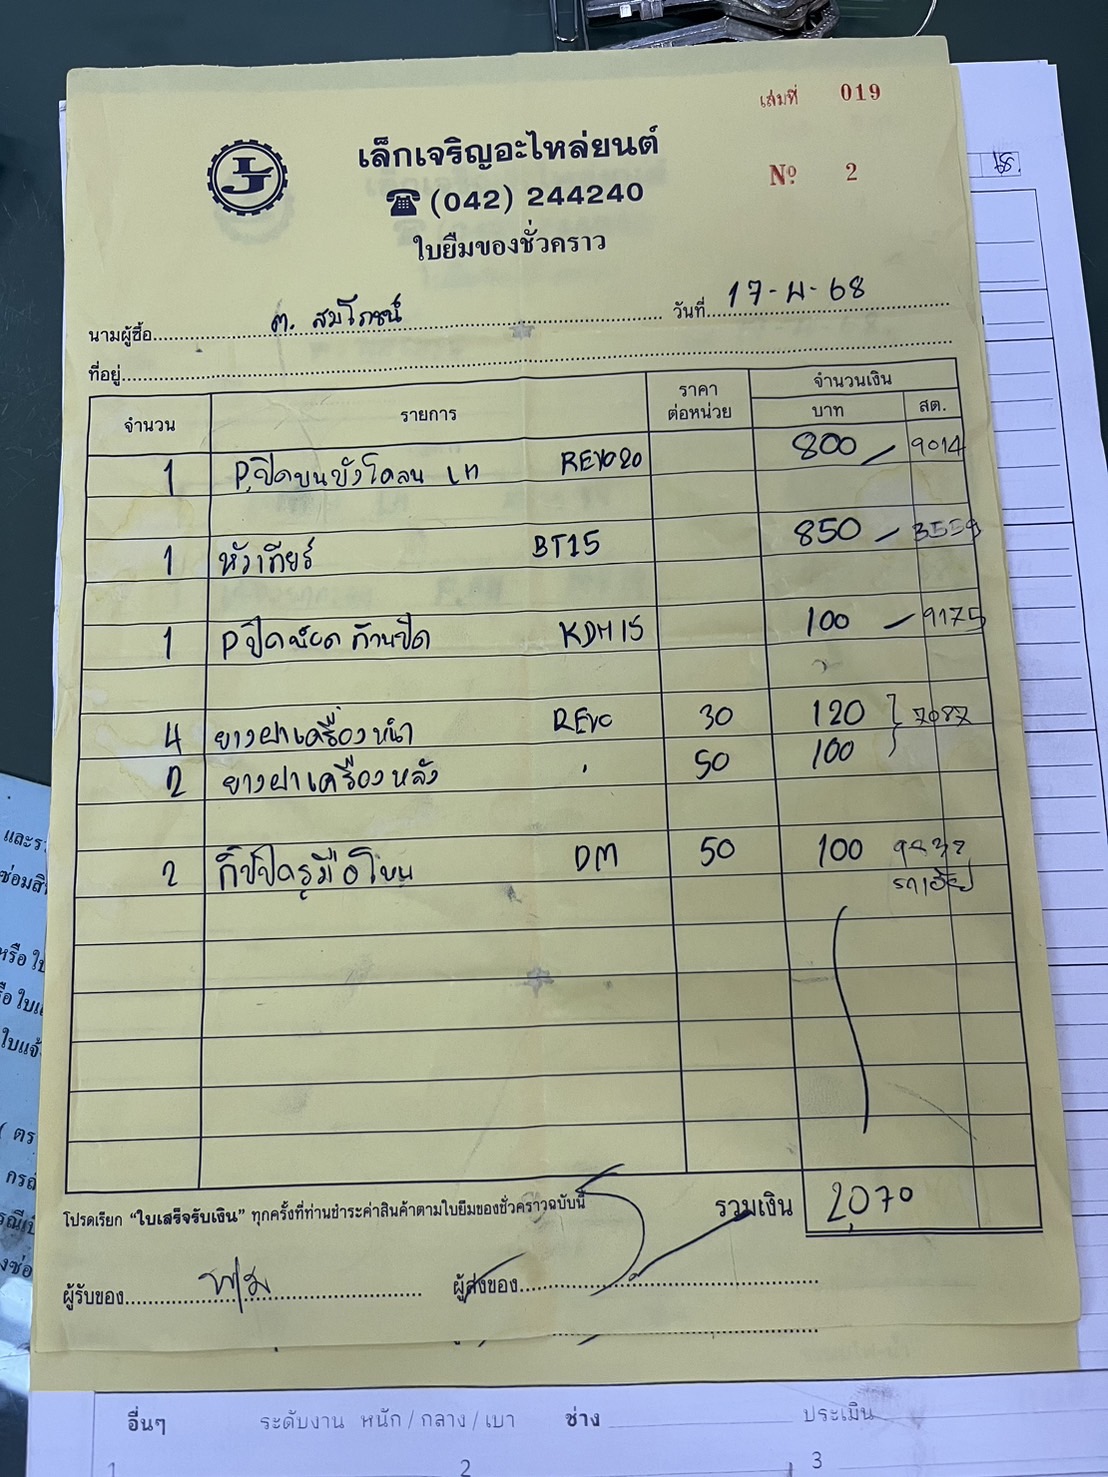 เล่มที่ 019
LJ
เล็กเจริญอะไหล่ยนต์
(042) 244240
Nº 2
ใบยืมของชั่วคราว
นามผู้ซื้อ ต. สมโภชน์ วันที่ 17-ม-68
ที่อยู่
จำนวน รายการ ราคาต่อหน่วย จำนวนเงิน บาท สต.
1 P.ปิดบนบังโคลน เท REVO20 800 – 9014
1 หัวเกียร์ BT15 850 – 3559
1 Pปิดน๊อตก้านปัด KDH15 100 – 9175
4 ยางฝาเครื่องหน้า REVO 30 120 7087
2 ยางฝาเครื่องหลัง " 50 100
2 กิ๊ปปิดรูมือโหน DM 50 100
โปรดเรียก “ใบเสร็จรับเงิน” ทุกครั้งที่ท่านชำระค่าสินค้าตามใบยืมของชั่วคราวฉบับนี้ รวมเงิน 2,070
ผู้รับของ ผู้ส่งของ
อื่นๆ ระดับงาน หนัก / กลาง / เบา ช่าง ประเมิน
1 2 3